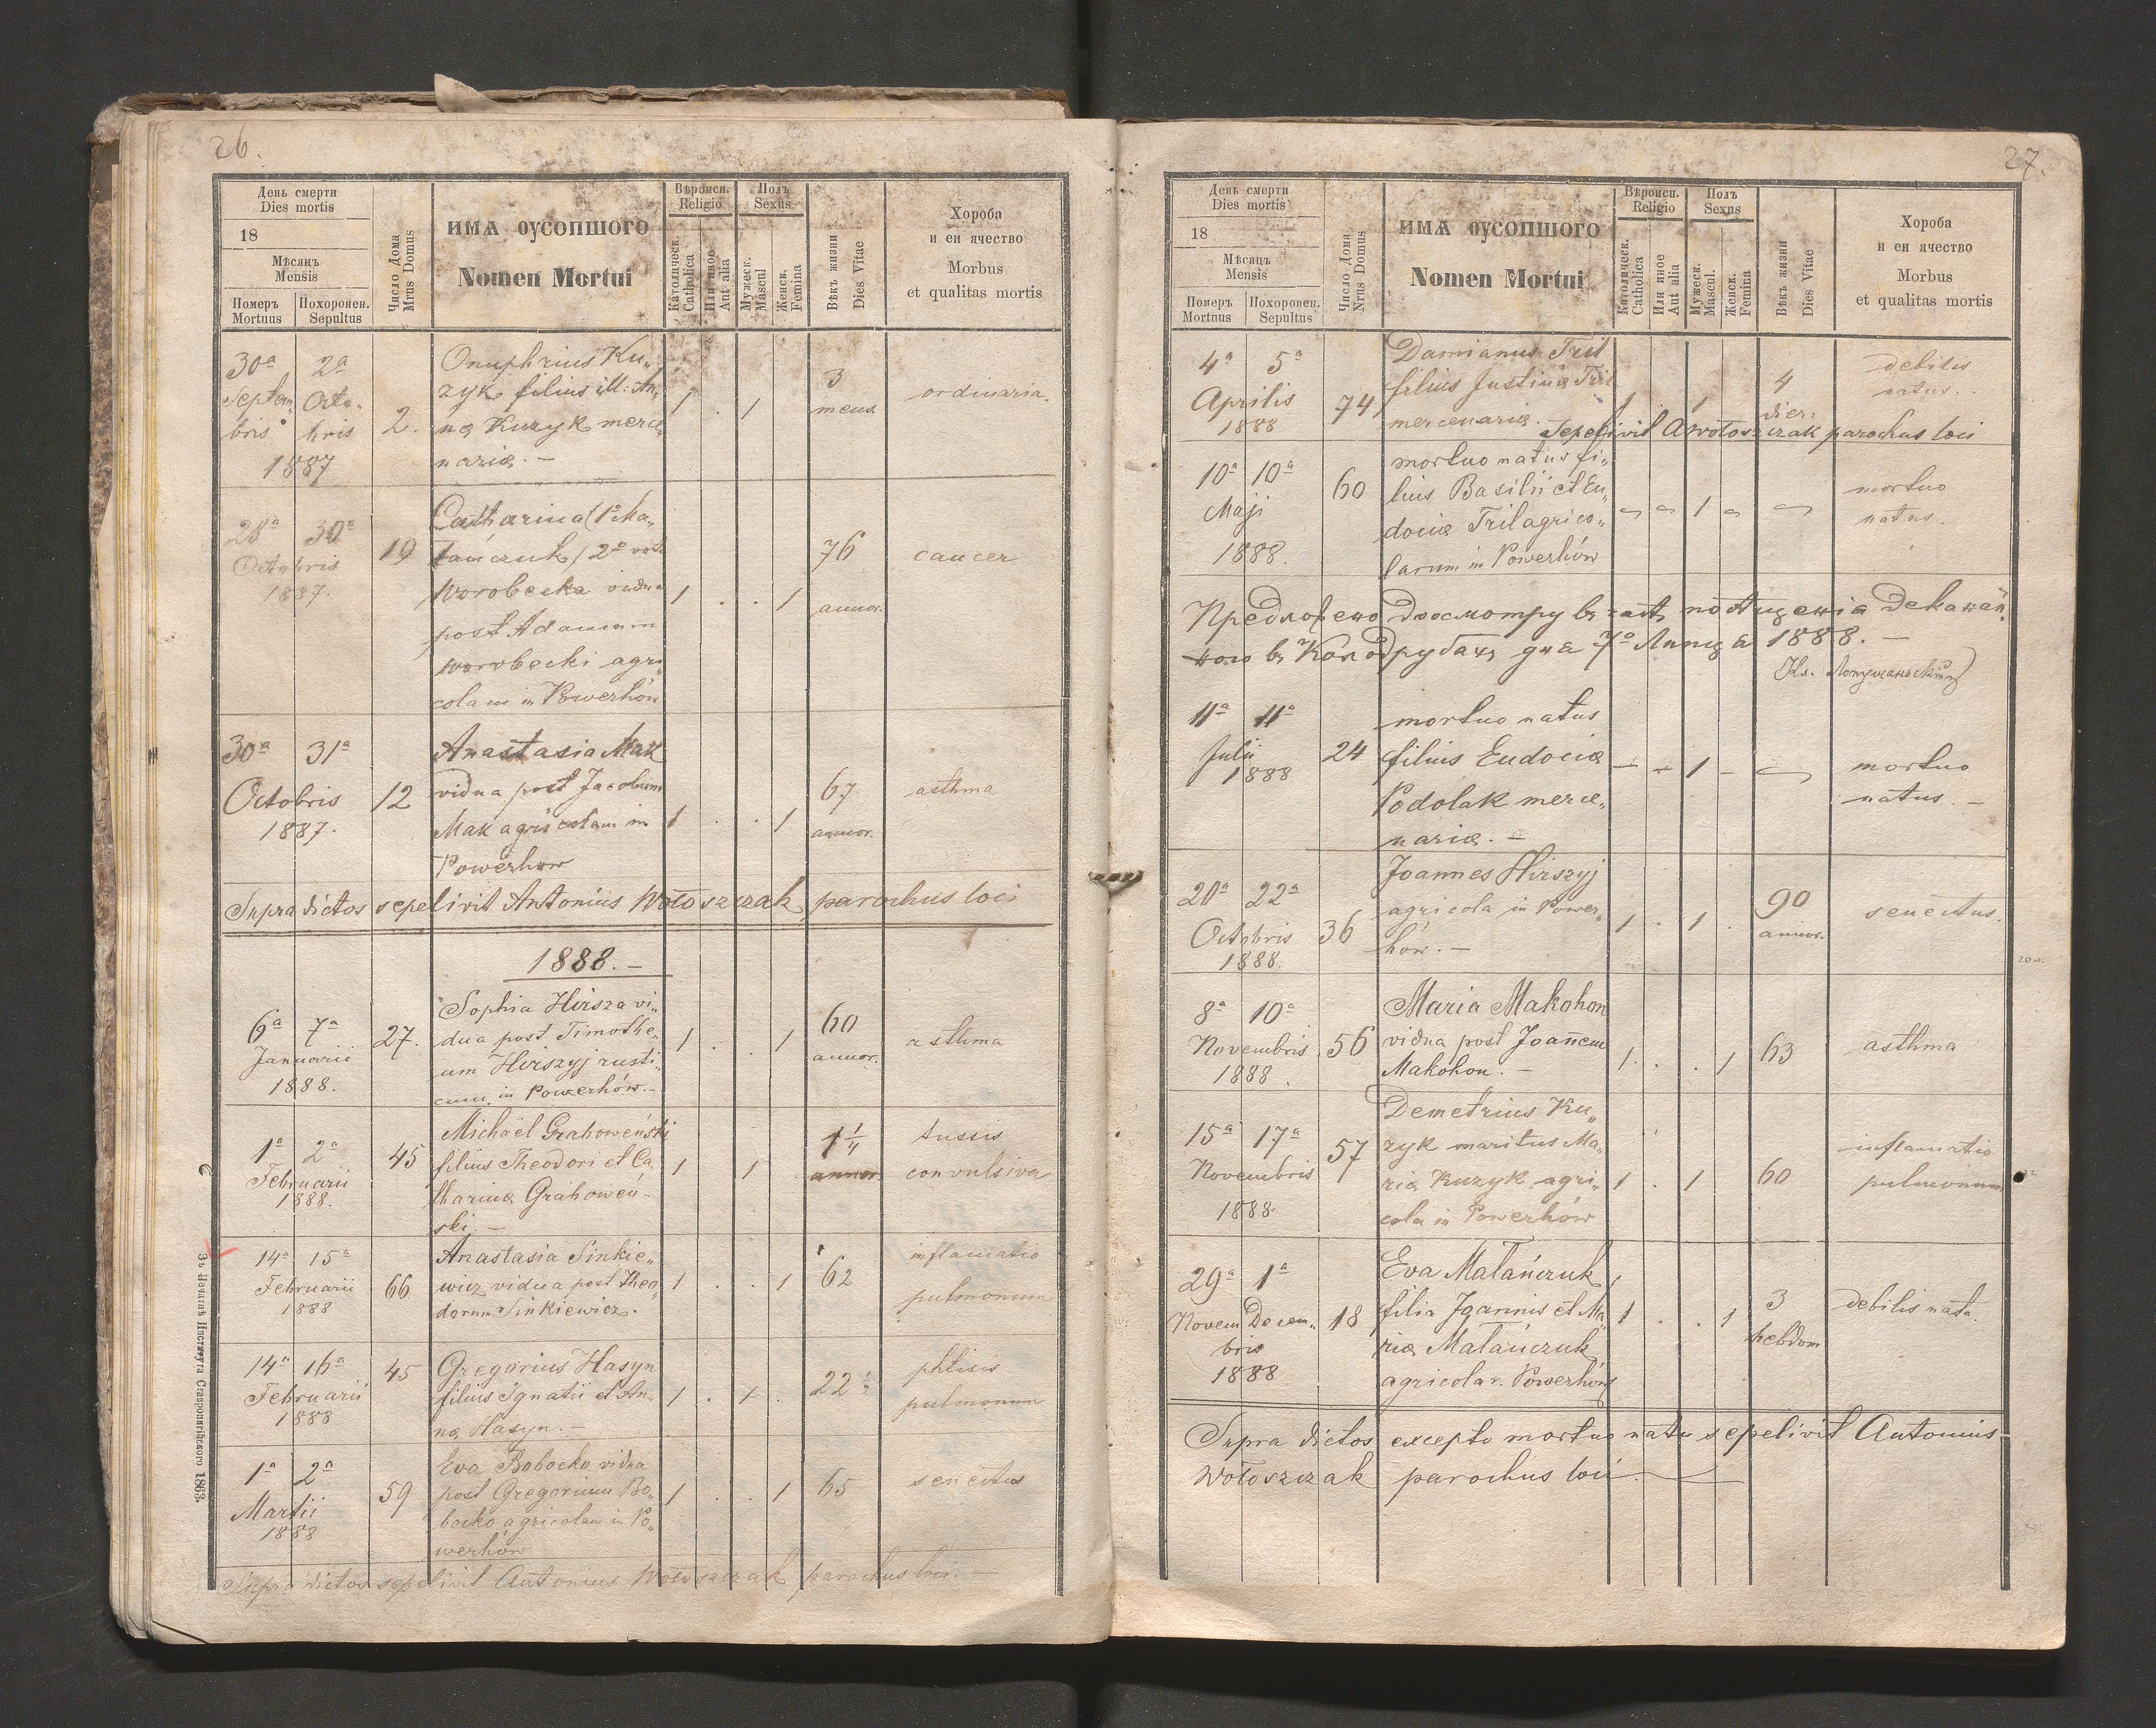 26.
День смерти
Dies mortis
18
Мѣсяць
Mensis
Померъ
Mortuus
Похоронен.
Sepultus
Число Дома
Mrus Domus
ИМА ОУСОПШОГО
Nomen Mortui
Вѣроисп.
Religio
Католическ.
Catholica
Или иное
Aut alia
Полъ
Sexus
Мужеск.
Mascul
Женск.
Femina
Вѣкъ жизни
Dies Vitae
Хороба
и еи ячество
Morbus
et qualitas mortis
30a 2a
Septem„ Octo„
bris bris
1887
2.
Onuphrius Ku„
zyk filius ill: An„
næ Kuzyk merce„
nariæ. —
1 . 1
3
mens.
ordinaria.
28a 30a
Octobris
1887.
19
Catharina (1º Ma„
łańczuk) 2º voto
Worobecka vidua
post Adamum
Worobecki agri„
colam in Powerhów
1 . . 1
76
annor.
cancer
30a 31a
Octobris
1887.
12
Anastasia Mak
vidua post Jacobum
Mak agricolam in
Powerhow
1 . . 1
67
annor.
asthma
Supra dictos sepelivit Antonius Wołoszczak parochus loci
1888. —
6a 7a
Januarii
1888.
27.
Sophia Hirsza vi„
dua post Timothe„
um Hirszyj rusti„
cum in Powerhów. —
1 . . 1
60
annor.
asthma
1a 2a
Februarii
1888.
45
Michaël Graboweński
filius Theodori et Ca„
tharinæ Graboweń„
ski. —
1 1
1 1/4
annor
tussis
convulsiva
14a 15a
Februarii
1888
66
Anastasia Sinkie„
wicz vidua post Theo„
dorum Sinkiewicz.
1 . . 1
62
inflamatio
pulmonum
14a 16a
Februarii
1888
45
Gregorius Hasyn
filius Ignatii et An„
næ Hasyn. —
1 . 1 .
22
phtisis
pulmonum
1a 2a
Martii
1888
59
Eva Bobocko vidua
post Gregorium Bo„
bocko agricolam in Po„
werhów
1 . . 1
65
senectus
Supra dictos sepelivit Antonius Wołoszczak parochus loci. —
Зъ Печатнѣ Института Ставропигійского 1863.
27.
День смерти
Dies mortis
18
Мѣсяць
Mensis
Померъ
Mortuus
Похоронен.
Sepultus
Число Дома
Nrus Domus
ИМА ОУСОПШОГО
Nomen Mortui
Вѣроисп.
Religio
Католическ.
Catholica
Или иное
Aut alia
Полъ
Sexus
Мужеск.
Mascul.
Женск.
Femina
Вѣкъ жизни
Dies Vitae
Хороба
и еи ячество
Morbus
et qualitas mortis
4a 5a
Aprilis
1888
74
Damianus Tril
filius Justinæ Tril
mercenariæ.
1 1
4
dier.
debilis
natus.
Sepelivit A Wołoszczak parochus loci
10a 10a
Maji
1888.
60
mortuo natus fi„
lius Basilii et Eu„
dociæ Tril agrico„
larum in Powerhów
1
mortuo
natus.
Предложено досмотру въ часѣ посѣщенія Деканаль„
ного въ Колодрубахъ дня 7º Липця 1888. —
11a 11a
Julii
1888
24
mortuo natus
filius Eudociæ
Podolak merce„
nariæ. —
— — 1 —
mortuo
natus. —
20a 22a
Octobris
1888
36
Joannes Hirszyj
agricola in Power„
hów. —
1 . 1 .
90
annor.
senectus.
8a 10a
Novembris
1888.
56
Maria Makohon
vidua post Joan̄em
Makohon. —
1 . . 1
63
asthma
15a 17a
Novembris
1888.
57
Demetrius Ku„
zyk maritus Ma„
riæ Kuzyk agri„
cola in Powerhów
1 . 1
60
inflamatio
pulmonum
29a 1a
Novem Decem„
bris
1888
18
Eva Małańczuk
filia Joannis et Ma„
riæ Małańczuk
agricolar. Powerhów
1 . . 1
3
hebdom
debilis nata.
Supra dictos excepto mortuo natu sepelivit Antonius
Wołoszczak parochus loci.